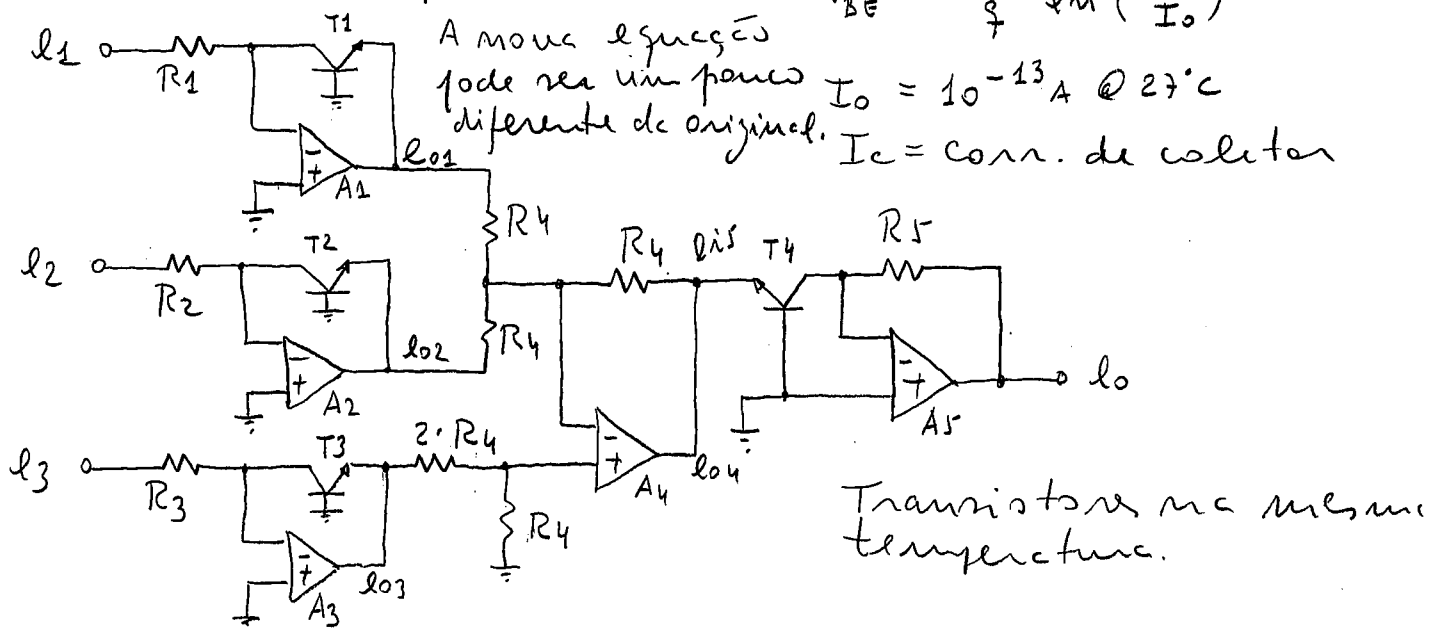 BE q ln( Io )
A nova equação
pode ser um pouco
diferente da original.
Io = 10⁻¹³ A @ 27°C
Ic = corr. de coletor
e1
R1
T1
A1
eo1
R4
e2
R2
T2
A2
eo2
R4
R4
ei5
T4
R5
eo
A5
e3
R3
T3
2·R4
A3
eo3
R4
A4
eo4
Transistores na mesma
temperatura.